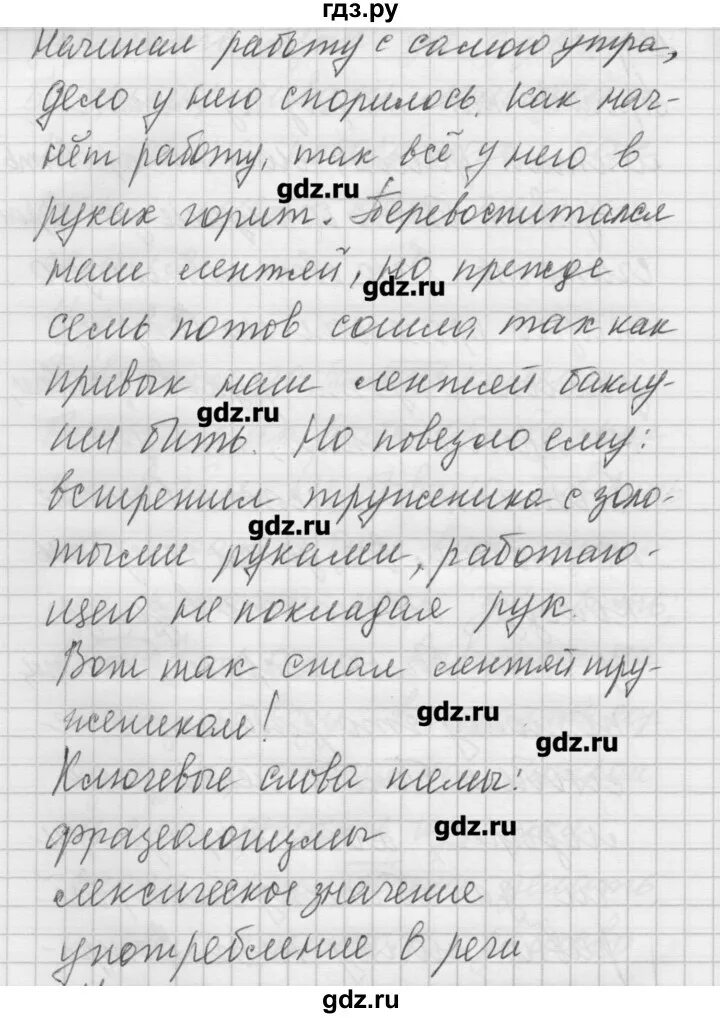 гдз.ру
Начинал работу с самого утра,
дело у него спорилось. Как нач-
нёт работу, так всё у него в
gdz.ru
руках горит. Перевоспитался
наш лентяй, но прежде
gdz.ru
семь потов сошла так как
привык наш лентяй баклу-
gdz.ru
ши бить. Но повезло ему:
встретил труженика с золо-
gdz.ru
тыми руками, работаю-
щего не покладая рук.
Вот так стал лентяй тру-
gdz.ru
жеником!
gdz.ru
Ключевые слова темы:
gdz.ru
фразеологизмы
лексическое значение
употребление в речи
gdz.ru